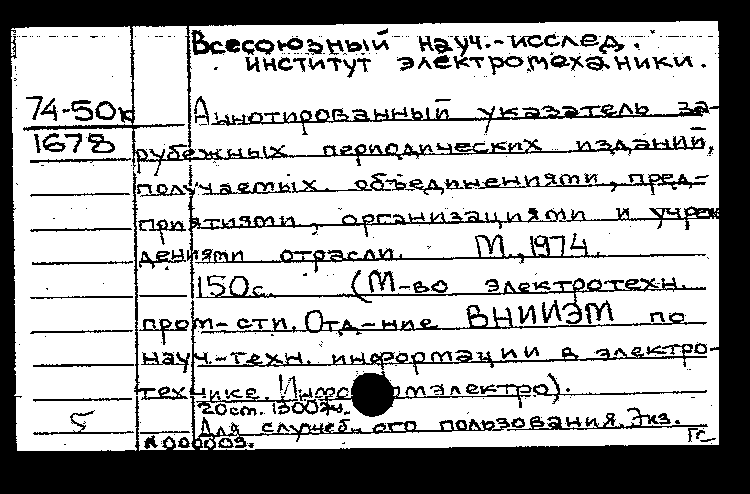 Всесоюзный науч.-исслед.
институт электромеханики.
74-50к
1678
Аннотированный указатель за-
рубежных периодических изданий,
получаемых объединениями, пред-
приятиями, организациями и учреж
дениями отрасли. М., 1974.
150с. (М-во электротехн.
пром-сти. Отд-ние ВНИИЭМ по
науч.-техн. информации в электро-
технике. Информэлектро).
20 1300
Для служебного пользования. Экз.
№000003.